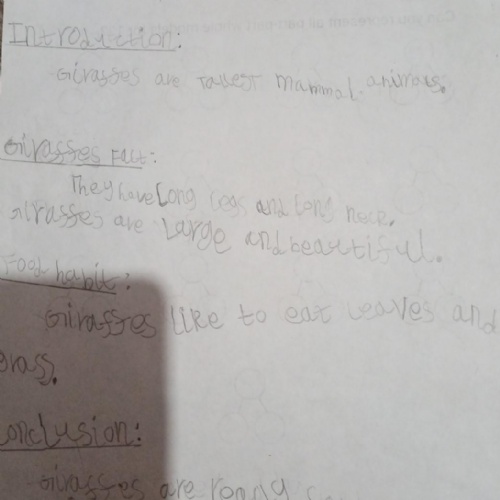 Introduction:
Giraffes are Tallest mammal animals.
Giraffes Fact:
They have Long Legs and Long neck.
Giraffes are Large and beautiful.
Food habit:
Giraffes Like to eat Leaves and
grass.
Conclusion:
Giraffes are